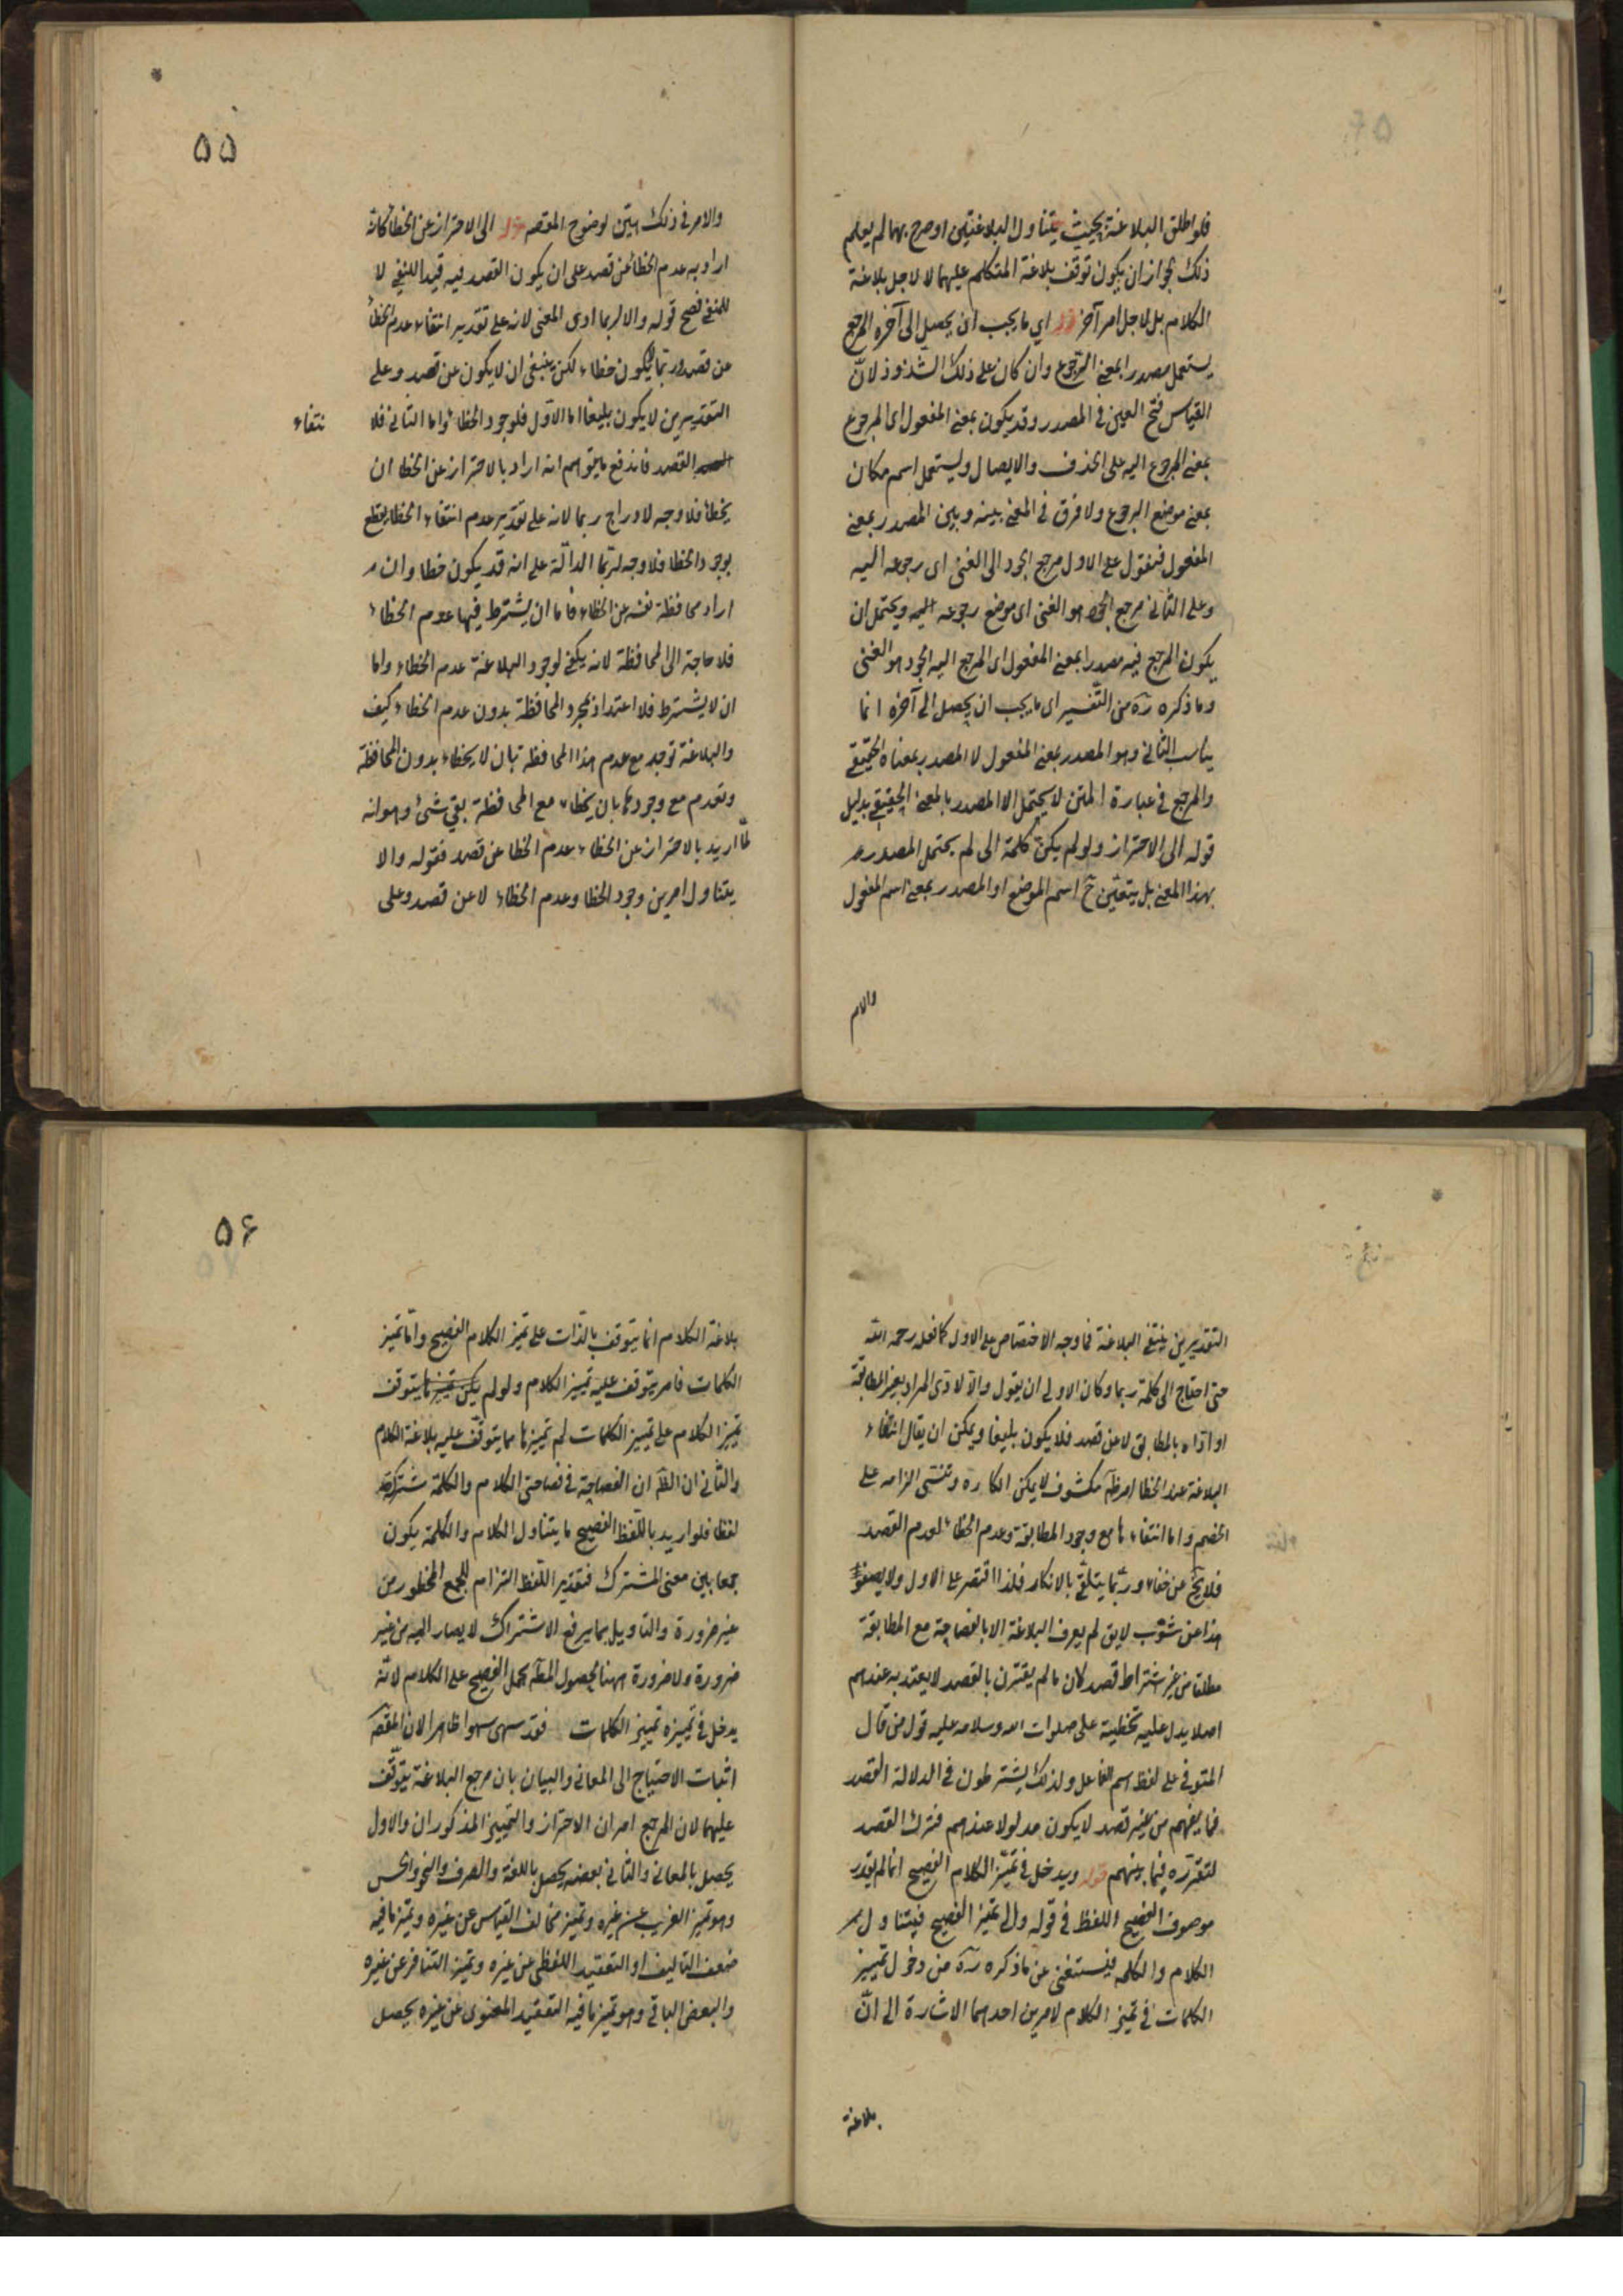 فلو اطلق البلاغة بحيث يتناول البلاغتين او صرح بهما لم يعلم
ذلك لجواز ان يكون توقف بلاغة المتكلم عليهما لا لاجل بلاغة
الكلام بل لاجل امر آخر قوله اي ما يجب ان يحصل الى آخره المرجع
يستعمل مصدرا بمعنى الرجوع وان كان على ذلك الشذوذ لانّ
القياس فتح العين في المصدر وقد يكون بمعنى المفعول اى المرجوع
بمعنى المرجوع اليه على الحذف والايصال ويستعمل اسم مكان
بمعنى موضع الرجوع ولا فرق في المعنى بينه وبين المصدر بمعنى
المفعول فنقول على الاول مرجع الجود الى الغنى اى رجوعه اليه
وعلى الثانى مرجع الجود هو الغنى اى موضع رجوعه اليه ويحتمل ان
يكون المرجع فيه مصدرا بمعنى المفعول اى المرجع اليه الجود هو الغنى
وما ذكره ره من التّفسير اى ما يجب ان يحصل الى آخره انما
يناسب الثانى وهو المصدر بمعنى المفعول لا المصدر بمعناه الحقيقى
والمرجع في عبارة المتن لا يحتمل الا المصدر بالمعنى الحقيقى بدليل
قوله الى الاحتراز ولو لم يكن كلمة الى لم يحتمل المصدر
بهذا المعنى بل يتعيّن ح اسم الموضع او المصدر بمعنى اسم المفعول
والامر
٥٥
والامر في ذلك هيّن لوضوح المقصد قوله الى الاحتراز عن الخطأ كانه
اراد به عدم الخطأ عن قصد على ان يكون القصد فيه قيدا للنفى لا
للمنفى فصح قوله والا لربما ادى المعنى لانه على تقدير انتفاء عدم الخطأ
عن قصد ربما يكون خطاء لكن ينبغى ان لا يكون عن قصد وعلى
التقديرين لا يكون بليغا اما الاوّل فلوجود الخطاء واما الثانى فلا
نتفاء
القصد فاندفع ما يتوهم انه اراد بالاحتراز عن الخطا ان
يخطأ فلا وجه لادراج ربما لانه على تقدير عدم انتفاء الخطا يقطع
بوجود الخطا فلا وجه لربّما الدالّة على انه قد يكون خطا وان
اراد محافظة نفسه عن الخطاء فاما ان يشترط فيها عدم الخطاء
فلا حاجة الى المحافظة لانه يكفى لوجود البلاغة عدم الخطاء واما
ان لا يشترط فلا اعتداد لمجرد المحافظة بدون عدم الخطاء كيف
والبلاغة توجد مع عدم هذا المحافظة بان لا يخطاء بدون المحافظة
وتعدم مع وجودها بان يخطاء مع المحافظة بقي شئ وهو انه
لمّا اريد بالاحتراز عن الخطاء عدم الخطا عن قصد فقوله والا
يتناول امرين وجود الخطا وعدم الخطاء لا عن قصد وعلى
التقديرين ينتفى البلاغة فما وجه الاختصاص على الاول كما فعله رحمه الله
حتى احتاج الى كلمة ربما وكان الاولى ان يقول والّا لادّى المراد بغير المطابقة
او ادّاه بالمطابق لا عن قصد فلا يكون بليغا ويمكن ان يقال انتفاء
البلاغة عند الخطا امر ظّ مكشوف لا يمكن انكاره ويتمشى الزامه على
الخصم واما انتفاءها مع وجود المطابقة وعدم الخطاء لعدم القصد
فلا يخ عن خفاء وربّما يتلقّى بالانكار فلذا اقتصر على الاول ولا يصفو
هذا عن شوب لانه لم يعرف البلاغة الا بالفصاحة مع المطابقة
مطلقا من غير اشتراط قصد لكان ما لم يقترن بالقصد لا يعتد به عندهم
اصلا يدل عليه تخطية على صلوات الله وسلامه عليه قول من قال
المتوفى على لفظ اسم الفاعل ولذلك يشترطون في الدلالة القصد
فما يفهم من غير قصد لا يكون مدلولا عندهم فترك القصد
لتقرّره فيما بينهم قوله ويدخل في تميّز الكلام الفصيح انما لم يقدر
موصوف الفصيح اللفظ في قوله والى تميّز الفصيح فيتناول
الكلام والكلمة فيستغنى عن ما ذكره ره من دخول تمييز
الكلمات في تميّز الكلام لامرين احدهما الاشارة الى انّ
بلاغة
٥٦
بلاغة الكلام انما يتوقف بالذات على تميّز الكلام الفصيح وامّا تميّز
الكلمات فامر يتوقف عليه تمييز الكلام ولو لم يكن تميز ما يتوقف
تميّز الكلام على تمييز الكلمات لم تمييزها مما يتوقّف عليه بلاغة الكلام
والثانى ان الظّ ان الفصاحة في فصاحتى الكلام والكلمة مشتركة
لفظا فلو اريد باللّفظ الفصيح ما يتناول الكلام والكلمة يكون
جمعا بين معنى المشترك فتقدير اللّفظ التزام للجمع المحظور من
غير ضرورة والتاويل بما يرفع الاشتراك لا يصار اليه من غير
ضرورة ولا ضرورة ههنا لحصول المطّ بحمل الفصيح على الكلام لانّه
يدخل في تمييزه تمييز الكلمات فقد سهى سهوا ظاهرا لان المقصّ
اثبات الاحتياج الى المعانى والبيان بان مرجع البلاغة يتوقّف
عليهما لان المرجع امران الاحتراز والتمييز المذكوران والاول
يحصل بالمعانى والثانى بعضه يحصل باللغة والصرف والنحو والحس
وهو تميّز الغريب عن غيره وتميّز مخالف القياس عن غيره وتميّز ما فيه
ضعف التاليف او التعقيد اللفظى عن غيره وتميّز التنافر عن غيره
والبعض الباقى وهو تميّز ما فيه التعقيد المعنوى عن غيره يحصل